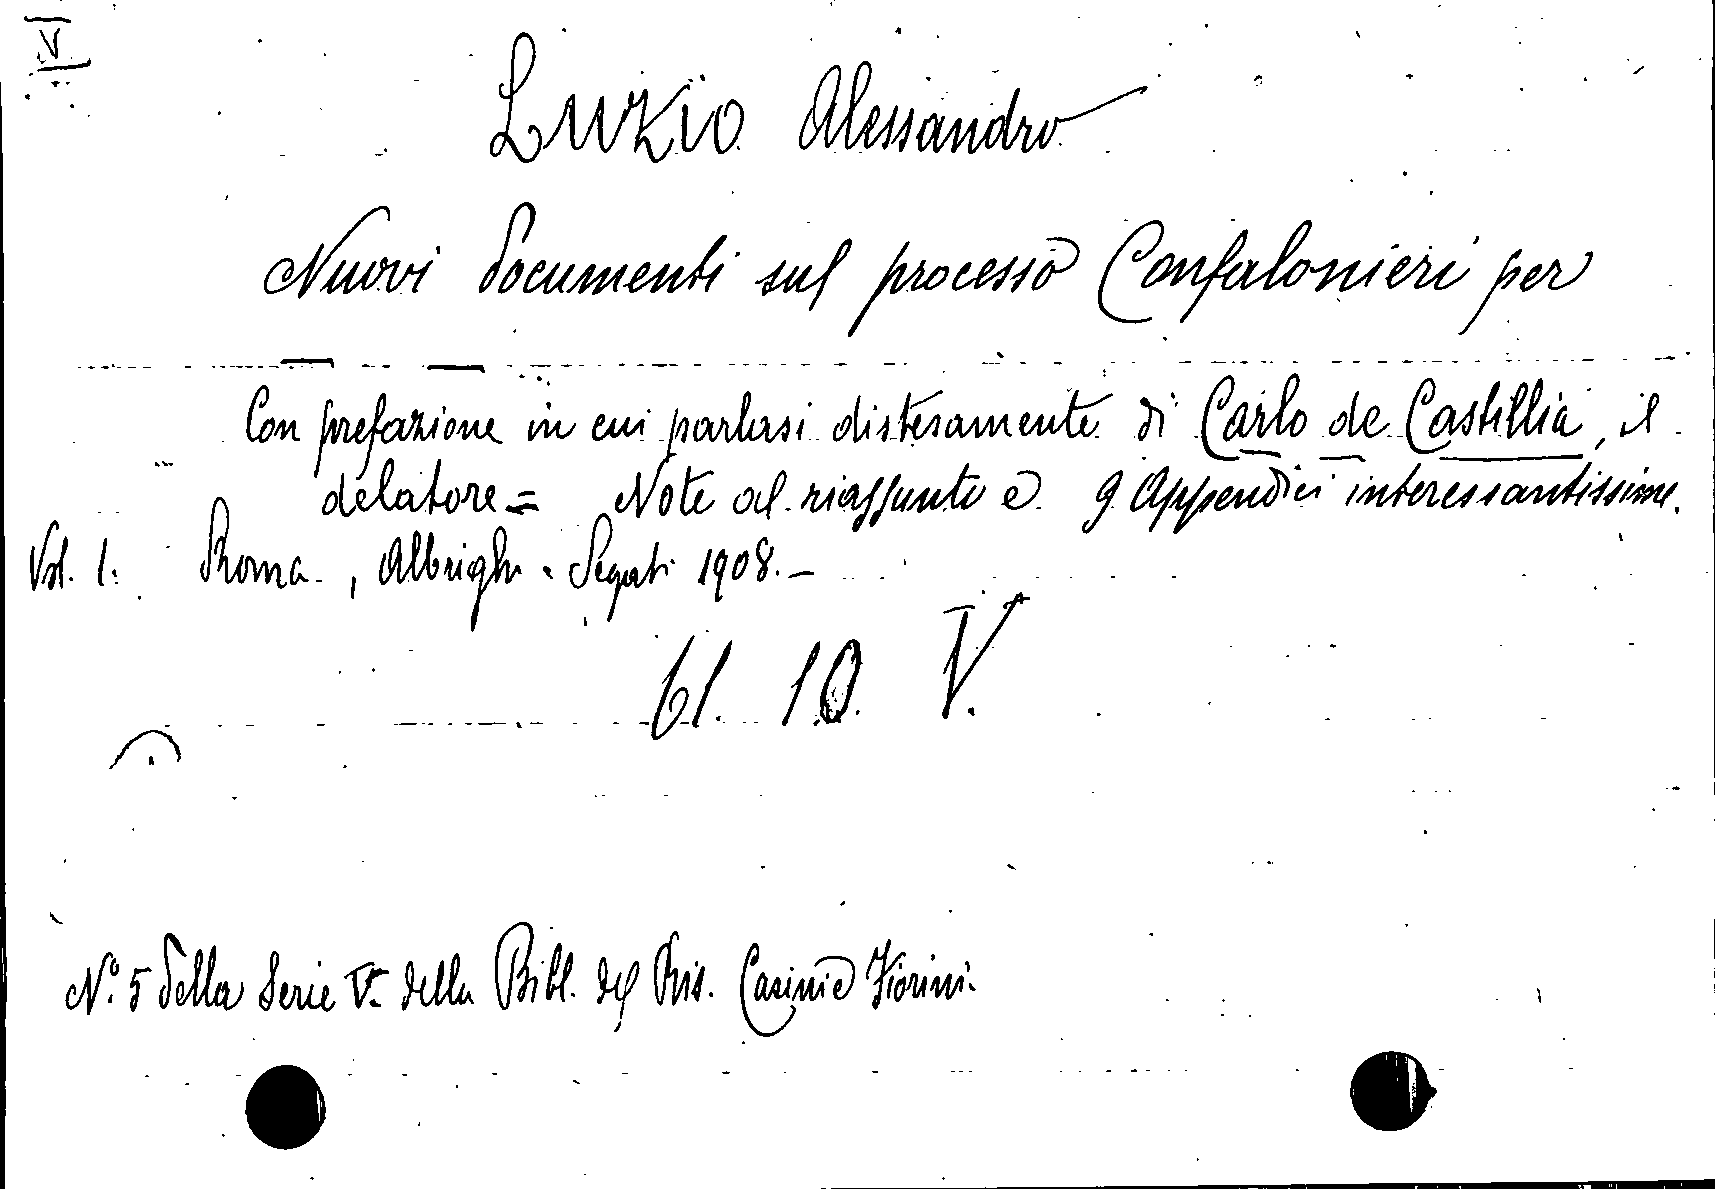 V
LUZIO Alessandro
Nuovi documenti sul processo Confalonieri per
Con prefazione in cui parlasi distesamente di Carlo de Castillia, il
delatore = Note al riassunto e 9 Appendici interessantissime.
Vol. 1. Roma, Albrighi - Segati 1908. -
61. 10. V.
N.° 5 della Serie V.a della Bibl. del Ris. Casini e Fiorini.